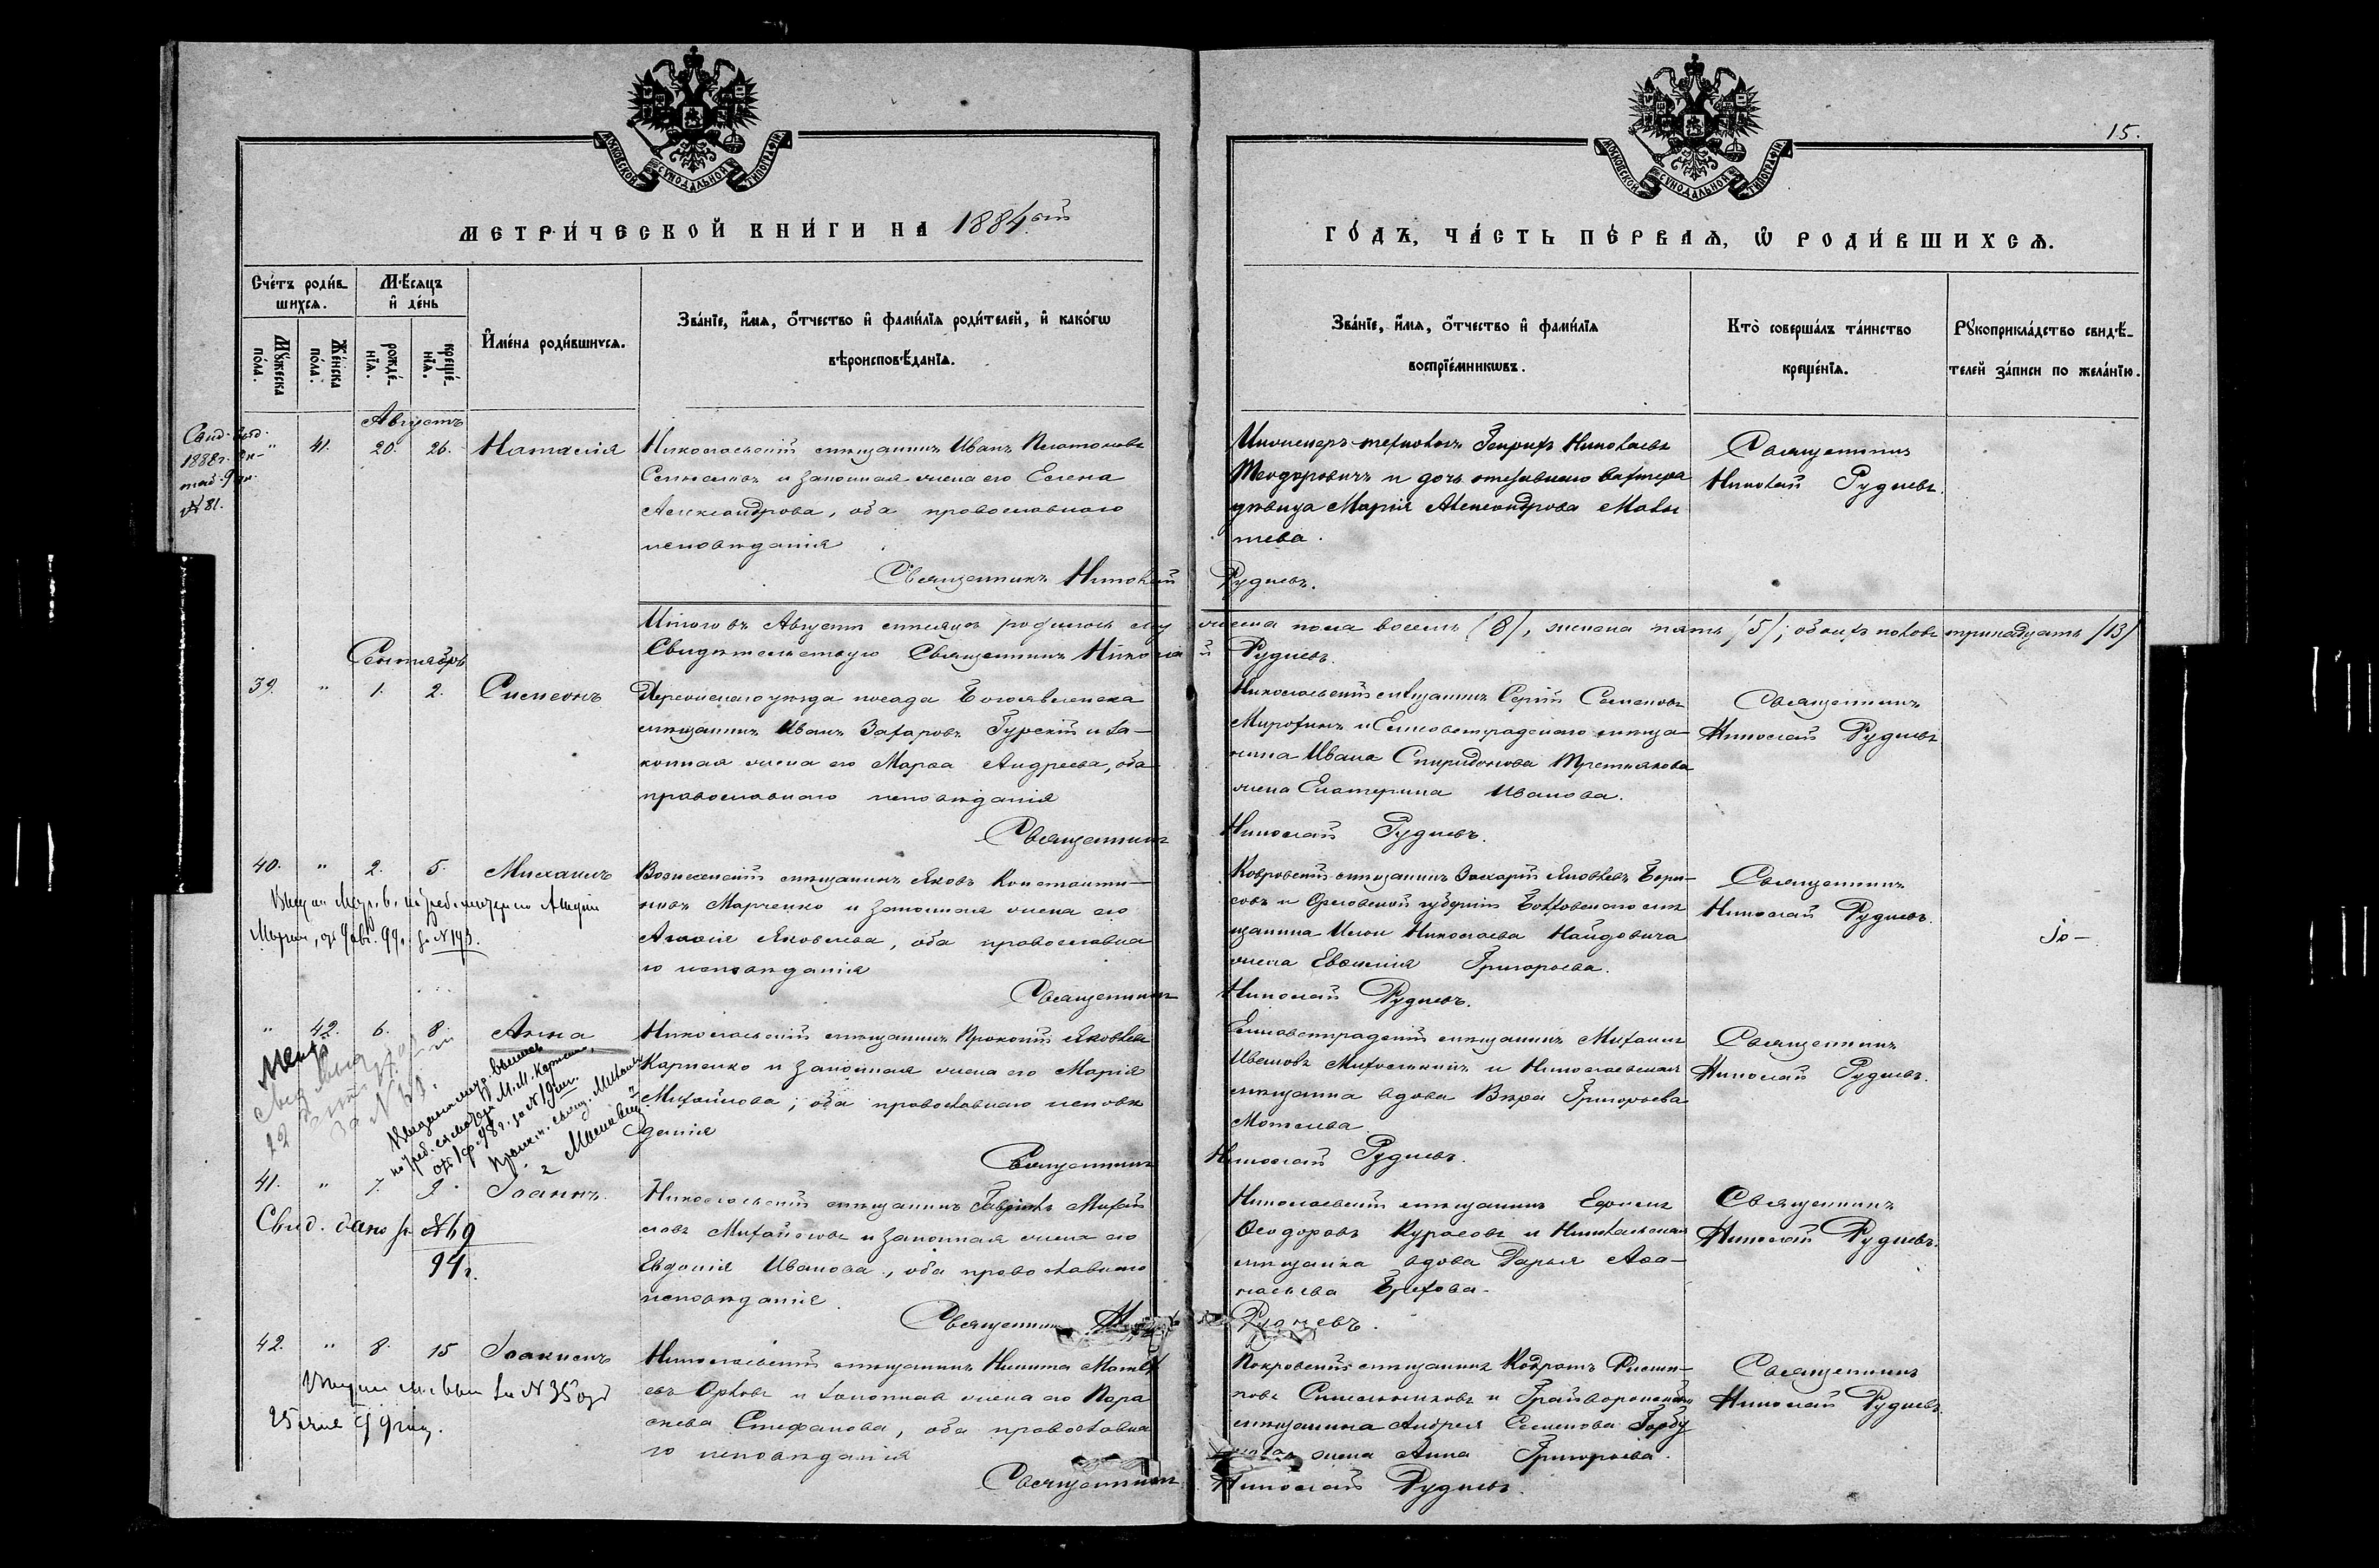 МОСКОВСКОЙ СѴНОДАЛЬНОЙ ТИПОГРАФІИ
МЕТРИ́ЧЕСКОЙ КНИ́ГИ НА 1884ый
Сче́тъ роди́в-
шихся.
Мꙋ́жеска
по́ла.
Же́нска
по́ла.
Мѣ́сяцъ
и҆ де́нь
рожде́-
нїѧ.
креще́-
нїѧ.
И҆мена̀ роди́вшихсѧ.
Зва́нїе, и҆́мѧ, ѻ҆́тчество и҆ фами́лїѧ роди́телей, и҆ како́гѡ
вѣроисповѣ́данїѧ.
Августъ
Свид. выд.
1888 г.
№ 81.
" 41. 20. 26. Наталія
Николаевскій мѣщанинъ Иванъ Платоновъ
и законная жена его Елена
Александрова, оба православнаго
исповѣданія
Священникъ Николай
Итого въ Августѣ мѣсяцѣ родилось му
Свидѣтельствую Священникъ Никола
Сентябрь
39. " 1. 2. Симеонъ
Херсонскаго уѣзда посада Богоявленска
мѣщанинъ Иванъ Захаровъ Гурскій и за-
конная жена его Марѳа Андреева, оба
православнаго исповѣданія
Священникъ
40. " 2. 5. Михаилъ
Вознесенскій мѣщанинъ Яковъ Константи-
новъ Марченко и законная жена его
Яковлева, оба православна
го исповѣданія
Священникъ
№ 193.
" 42. 6. 8. Анна
Николаевскій мѣщанинъ Прокопій Яковлевъ
Карпенко и законная жена его Марія
Михайлова, оба православнаго исповѣ
данія
Священникъ
41. " 7. 9. Іоаннъ
Николаевскій мѣщанинъ Гавріилъ Михай
ловъ Михайловъ и законная жена его
Евдокія Иванова, оба православнаго
исповѣданія
Священникъ
Свид. дано за №69
94 г.
42. " 8. 15 Іоакимъ
Николаевскій мѣщанинъ Никита Матвѣ
евъ Орловъ и законная жена его Пара
скева Стефанова, оба православна
го исповѣданія
Священникъ
за №35
МОСКОВСКОЙ СѴНОДАЛЬНОЙ ТИПОГРАФІИ
15.
ГО́ДЪ, ЧА́СТЬ ПЕ́РВАѦ, Ѡ҆ РОДИ́ВШИХСѦ.
Зва́нїе, и҆́мѧ, ѻ҆́тчество и҆ фами́лїѧ
воспрїе́мникѡвъ.
Кто̀ соверша́лъ та́инство
креще́нїѧ.
Рꙋкоприкла́дство свидѣ́-
телей за́писи по жела́нїю.
Инженеръ-технологъ Генрихъ Николаевъ
Теодоровичъ и дочь отставнаго вахтера
дѣвица Марія Александрова
Священникъ
Николай Рудневъ.
Рудневъ.
жеска пола восемь (8), женска пять (5); обоихъ половъ тринадцать (13)
й Рудневъ.
Николаевскій мѣщанинъ Сергій Семеновъ
и Елисаветградскаго мѣща
нина Ивана Спиридонова Третьякова
жена Екатерина Иванова.
Священникъ
Николай Рудневъ
Николай Рудневъ.
Ковровскій мѣщанинъ Захарій Яковлевъ Бори-
совъ и Орловской губерніи Болховскаго мѣ
щанина Николаева Найдовича
жена Евгенія Григорьева.
Священникъ
Николай Рудневъ.
Николай Рудневъ.
Елисаветградскій мѣщанинъ Михаилъ
Ивановъ и Николаевская
мѣщанка вдова Вѣра Григорьева
Священникъ
Николай Рудневъ.
Николай Рудневъ.
Николаевскій мѣщанинъ Ефимъ
Ѳеодоровъ и Николаевская
мѣщанка вдова Дарья Аѳа-
насьева
Священникъ
Николай Рудневъ.
Рудневъ.
Покровскій мѣщанинъ Кодратъ Филип-
повъ Синельниковъ и Грайворонскаго
мѣщанина Андрея Семенова
жена Анна Григорьева.
Священникъ
Николай Рудневъ.
Николай Рудневъ.